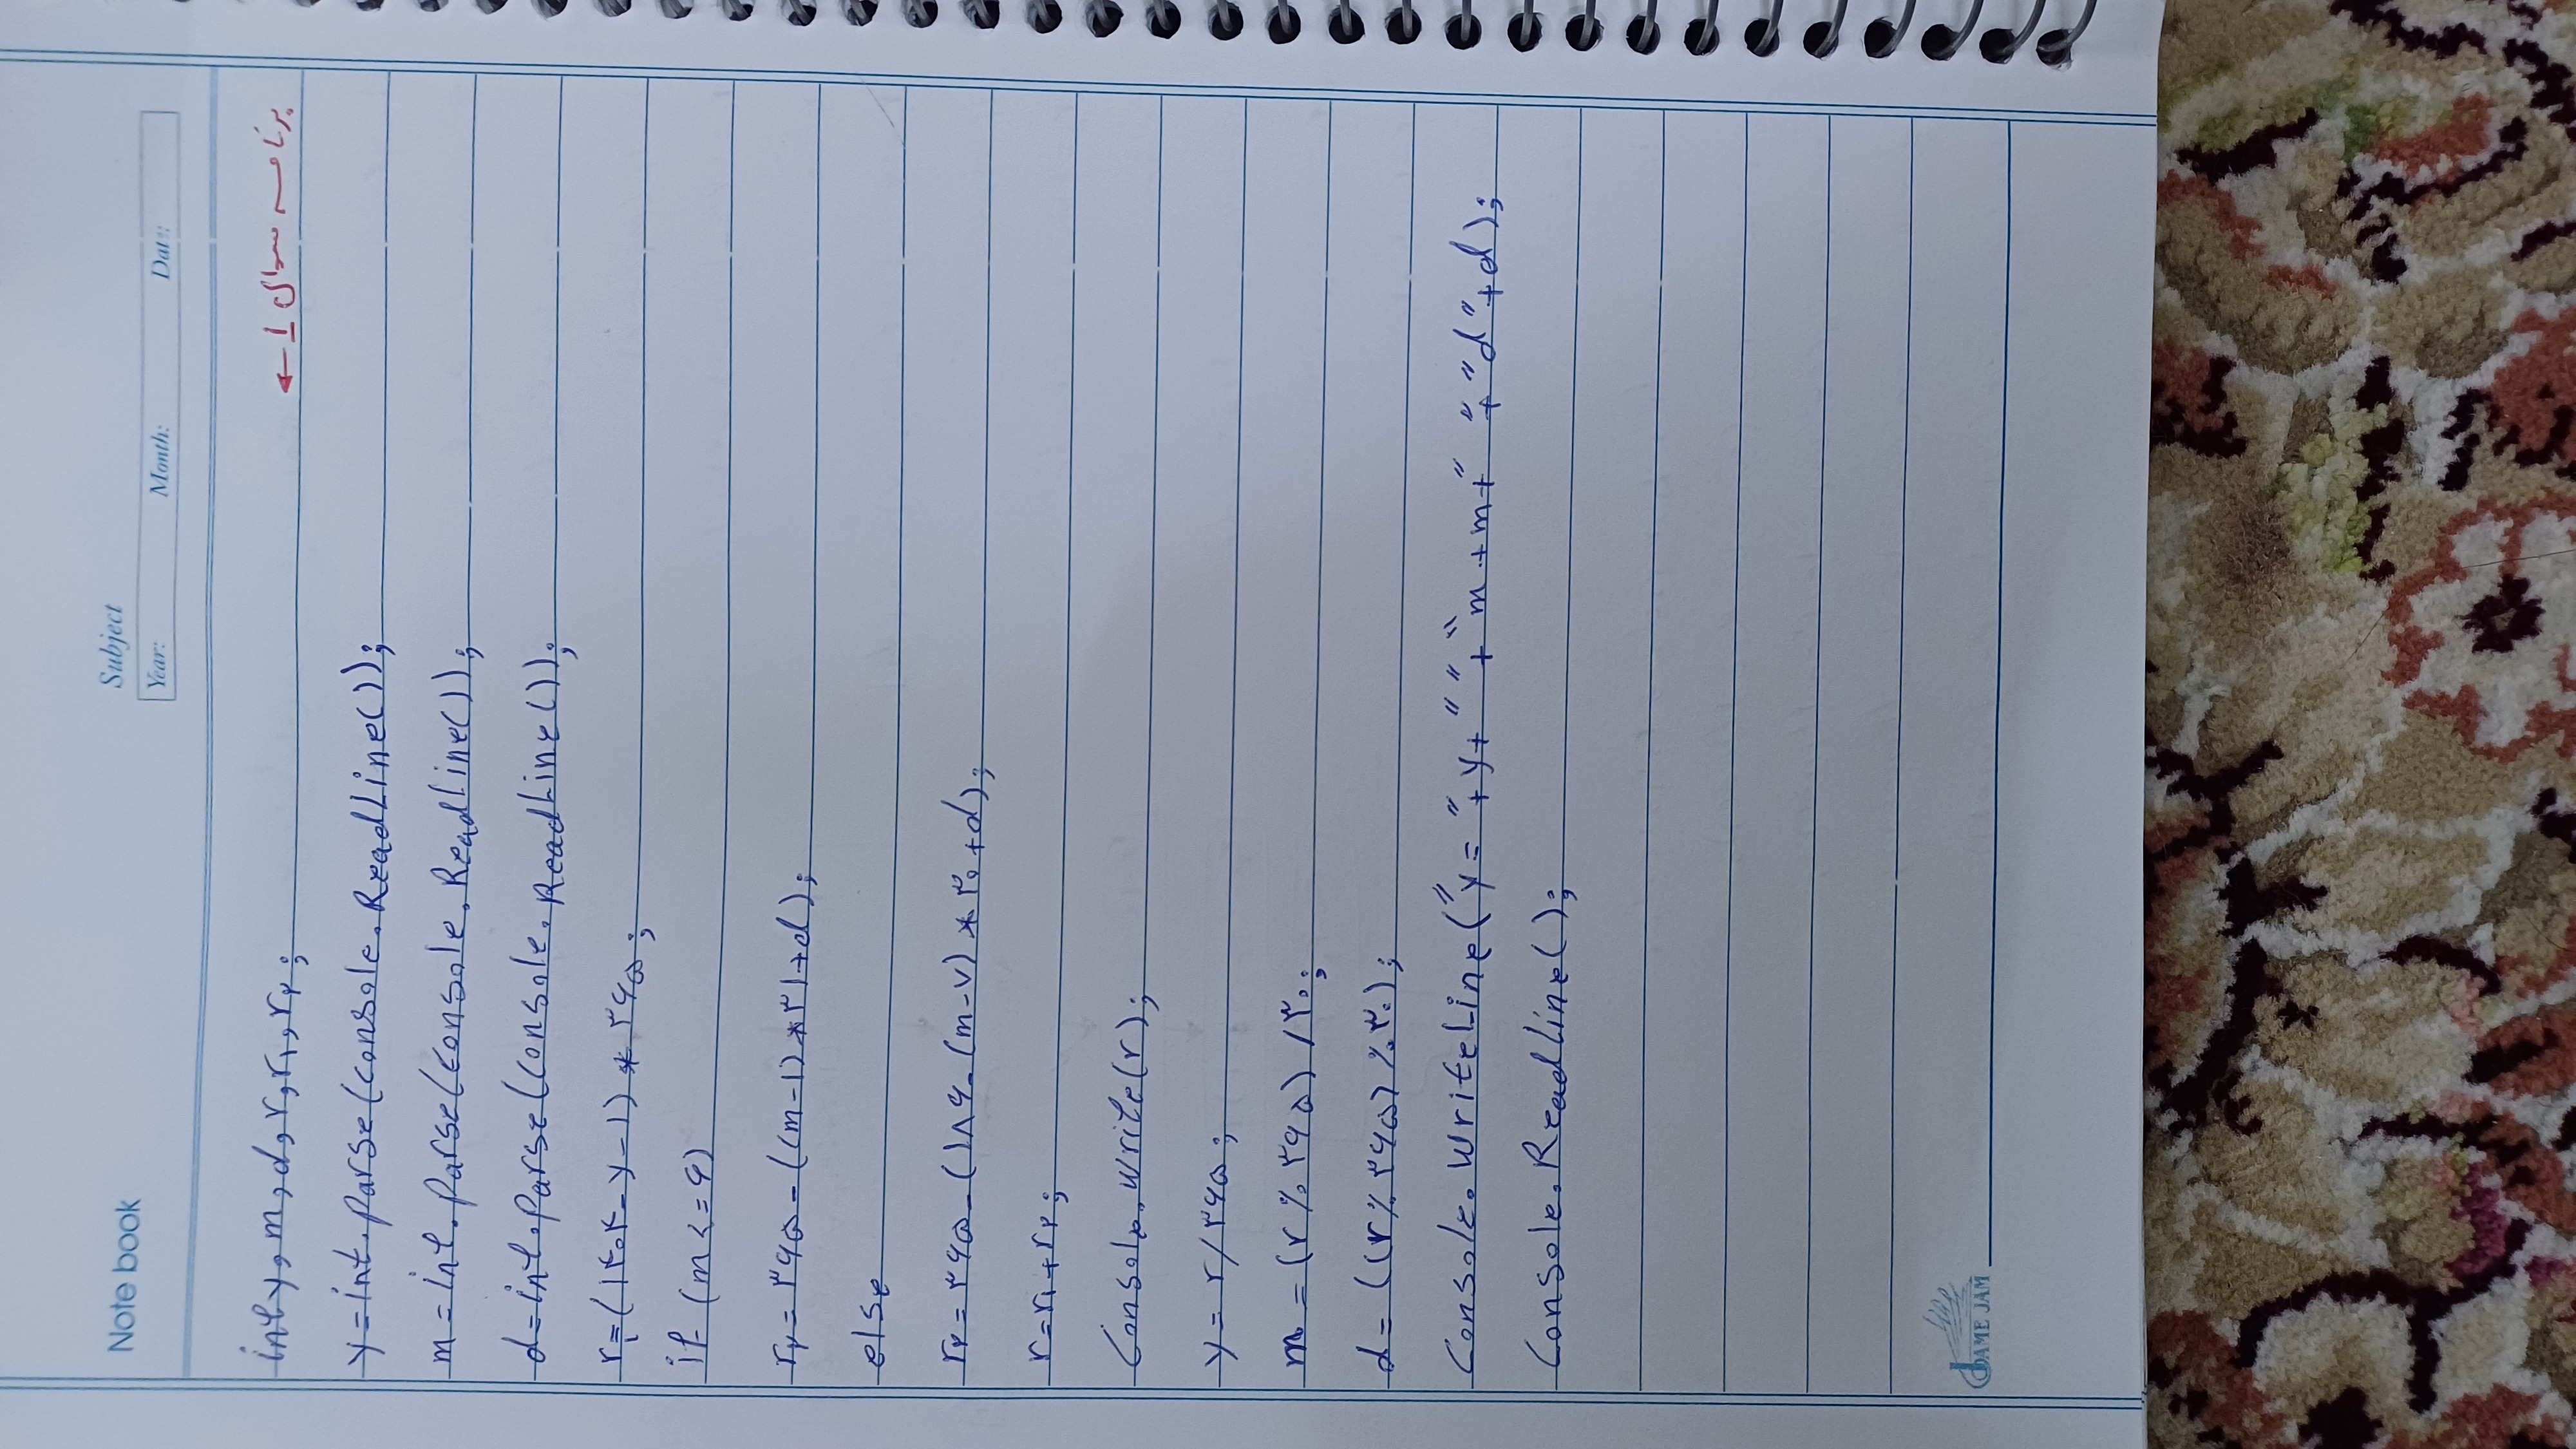 Note book
Subject
Year: Month: Date:
برنامه سوال 1 ←
int y, m, d, r, r۱, r۲;
y=int.parse(console.ReadLine());
m=int.parse(console.ReadLine());
d=int.parse(console.ReadLine());
r۱=(۱۴۰۴-y-۱)*۳۶۵;
if (m<=۶)
r۲=۳۶۵-((m-۱)*۳۱+d);
else
r۲=۳۶۵-(۱۸۶-(m-۷)*۳۰+d);
r=r۱+r۲;
Console.write(r);
y=r/۳۶۵;
m=(r%۳۶۵)/۳۰;
d=((r%۳۶۵)%۳۰);
Console.WriteLine("y="+y+" "+"m+m+" "+"d"+d);
Console.Readline();
DAME JAM